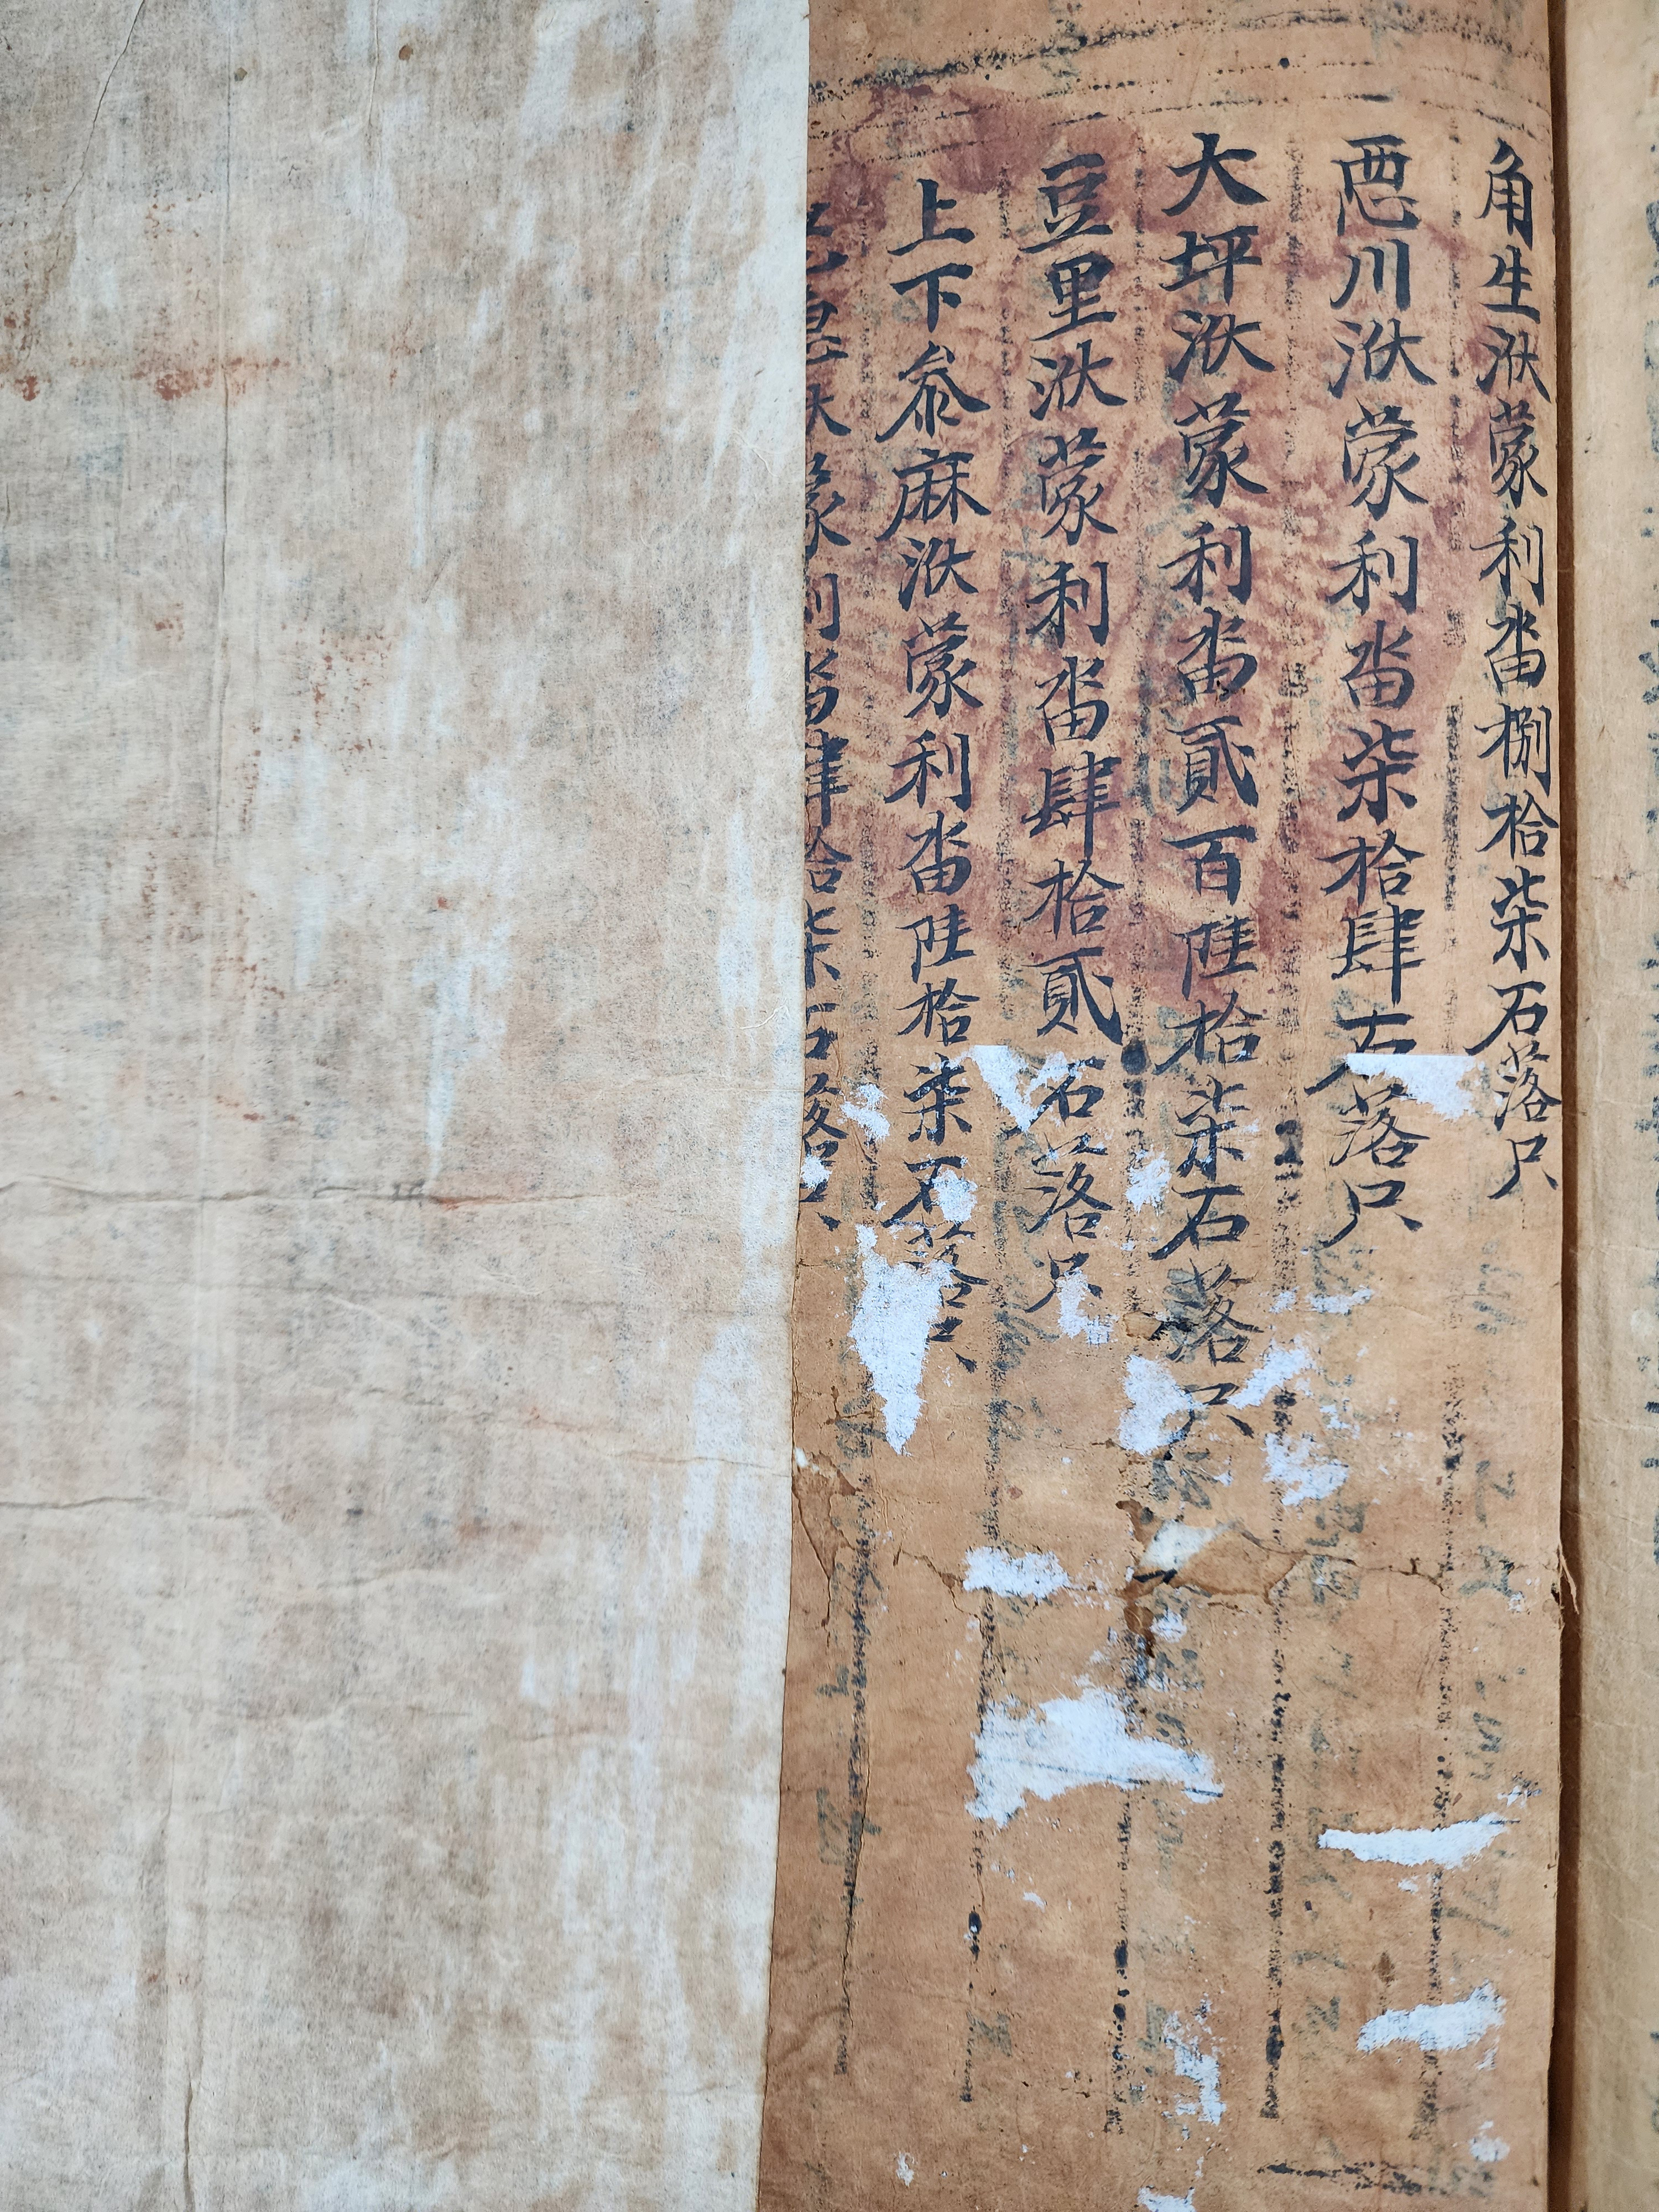 角生洑蒙利畓捌拾柒石落只
恧川洑蒙利畓柒拾肆石落只
大坪洑蒙利畓貳百陸拾柒石落只
豆里洑蒙利畓肆拾貳石落只
上下叅麻洑蒙利畓陸拾柒石落只
洑蒙利畓肆拾柒石落只